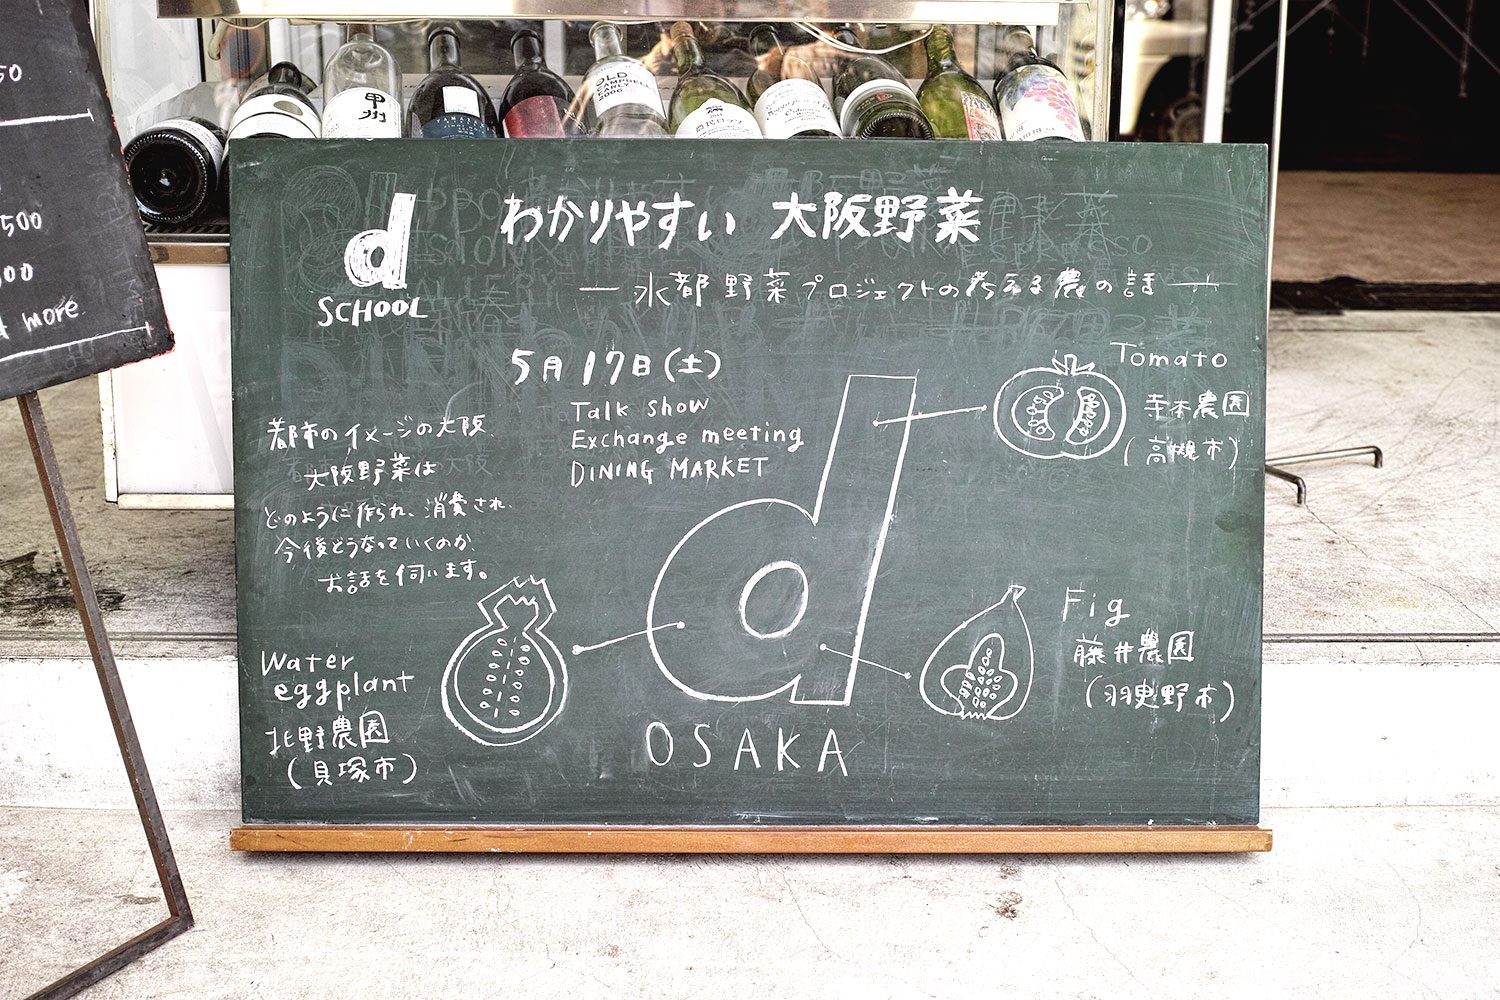 50
500
500
more
甲州
OLD
CAMPBELL
EARLY
2006
d
SCHOOL
わかりやすい 大阪野菜
— 水都野菜プロジェクトの考える農の話 —
5月17日(土)
Talk show
Exchange meeting
DINING MARKET
都市のイメージの大阪、
大阪野菜は
どのように作られ、消費され、
今後どうなっていくのか、
お話を伺います。
Tomato
寺本農園
(高槻市)
Fig
藤井農園
(羽曳野市)
Water
eggplant
北野農園
(貝塚市)
d
OSAKA